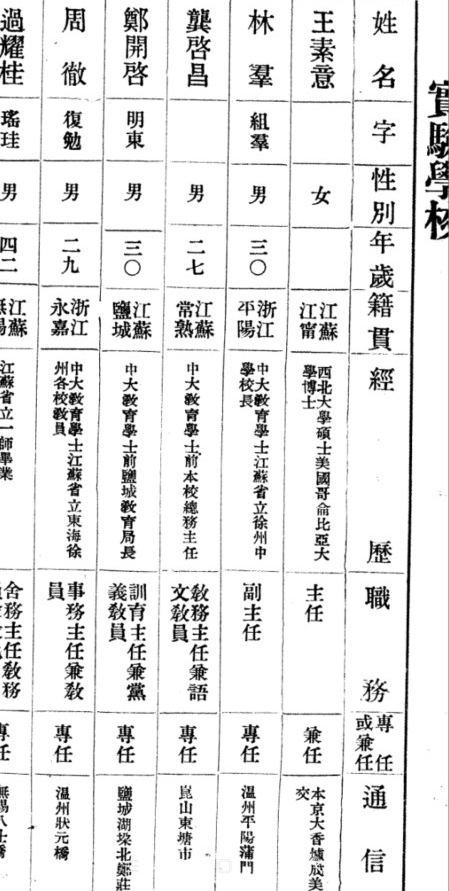 實驗學校
姓名 字 性別 年歲 籍貫 經歷 職務 專任或兼任 通信
王素意 女 江蘇江甯 西北大學碩士美國哥侖比亞大學博士 主任 兼任 本京大香爐成美交
林羣 組羣 男 三〇 浙江平陽 中大敎育學士江蘇省立徐州中學校長 副主任 專任 溫州平陽蒲門
龔啓昌 男 二七 江蘇常熟 中大敎育學士前本校總務主任 敎務主任兼語文敎員 專任 崑山東塘市
鄭開啓 明東 男 三〇 江蘇鹽城 中大敎育學士前鹽城敎育局長 訓育主任兼黨義敎員 專任 鹽城湖垛北鄭莊
周徹 復勉 男 二九 浙江永嘉 中大敎育學士江蘇省立東海徐州各校敎員 事務主任兼敎員 專任 溫州狀元橋
過耀桂 瑤珪 男 四二 江蘇無錫 江蘇省立一師畢業 舍務主任敎務 專任 無錫八士橋